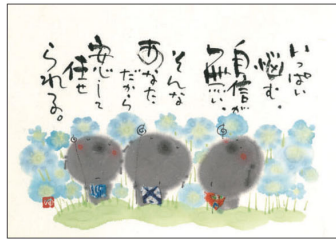 いっぱい
悩む。
自信が
無い、
そんな
あなた
だから
安心して
任せ
られる。